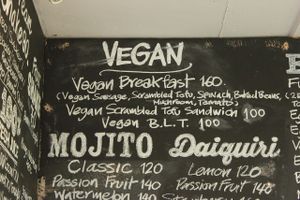 VEGAN
Vegan Breakfast 160
(Vegan Sausage, Scrambled Tofu, Spinach, Baked Beans,
Mushroom, Tomato)
Vegan Scrambled Tofu Sandwich 100
Vegan B.L.T. 100
MOJITO Daiquiri
Classic 120 Lemon 120
Passion Fruit 140 Passion Fruit 140
Watermelon